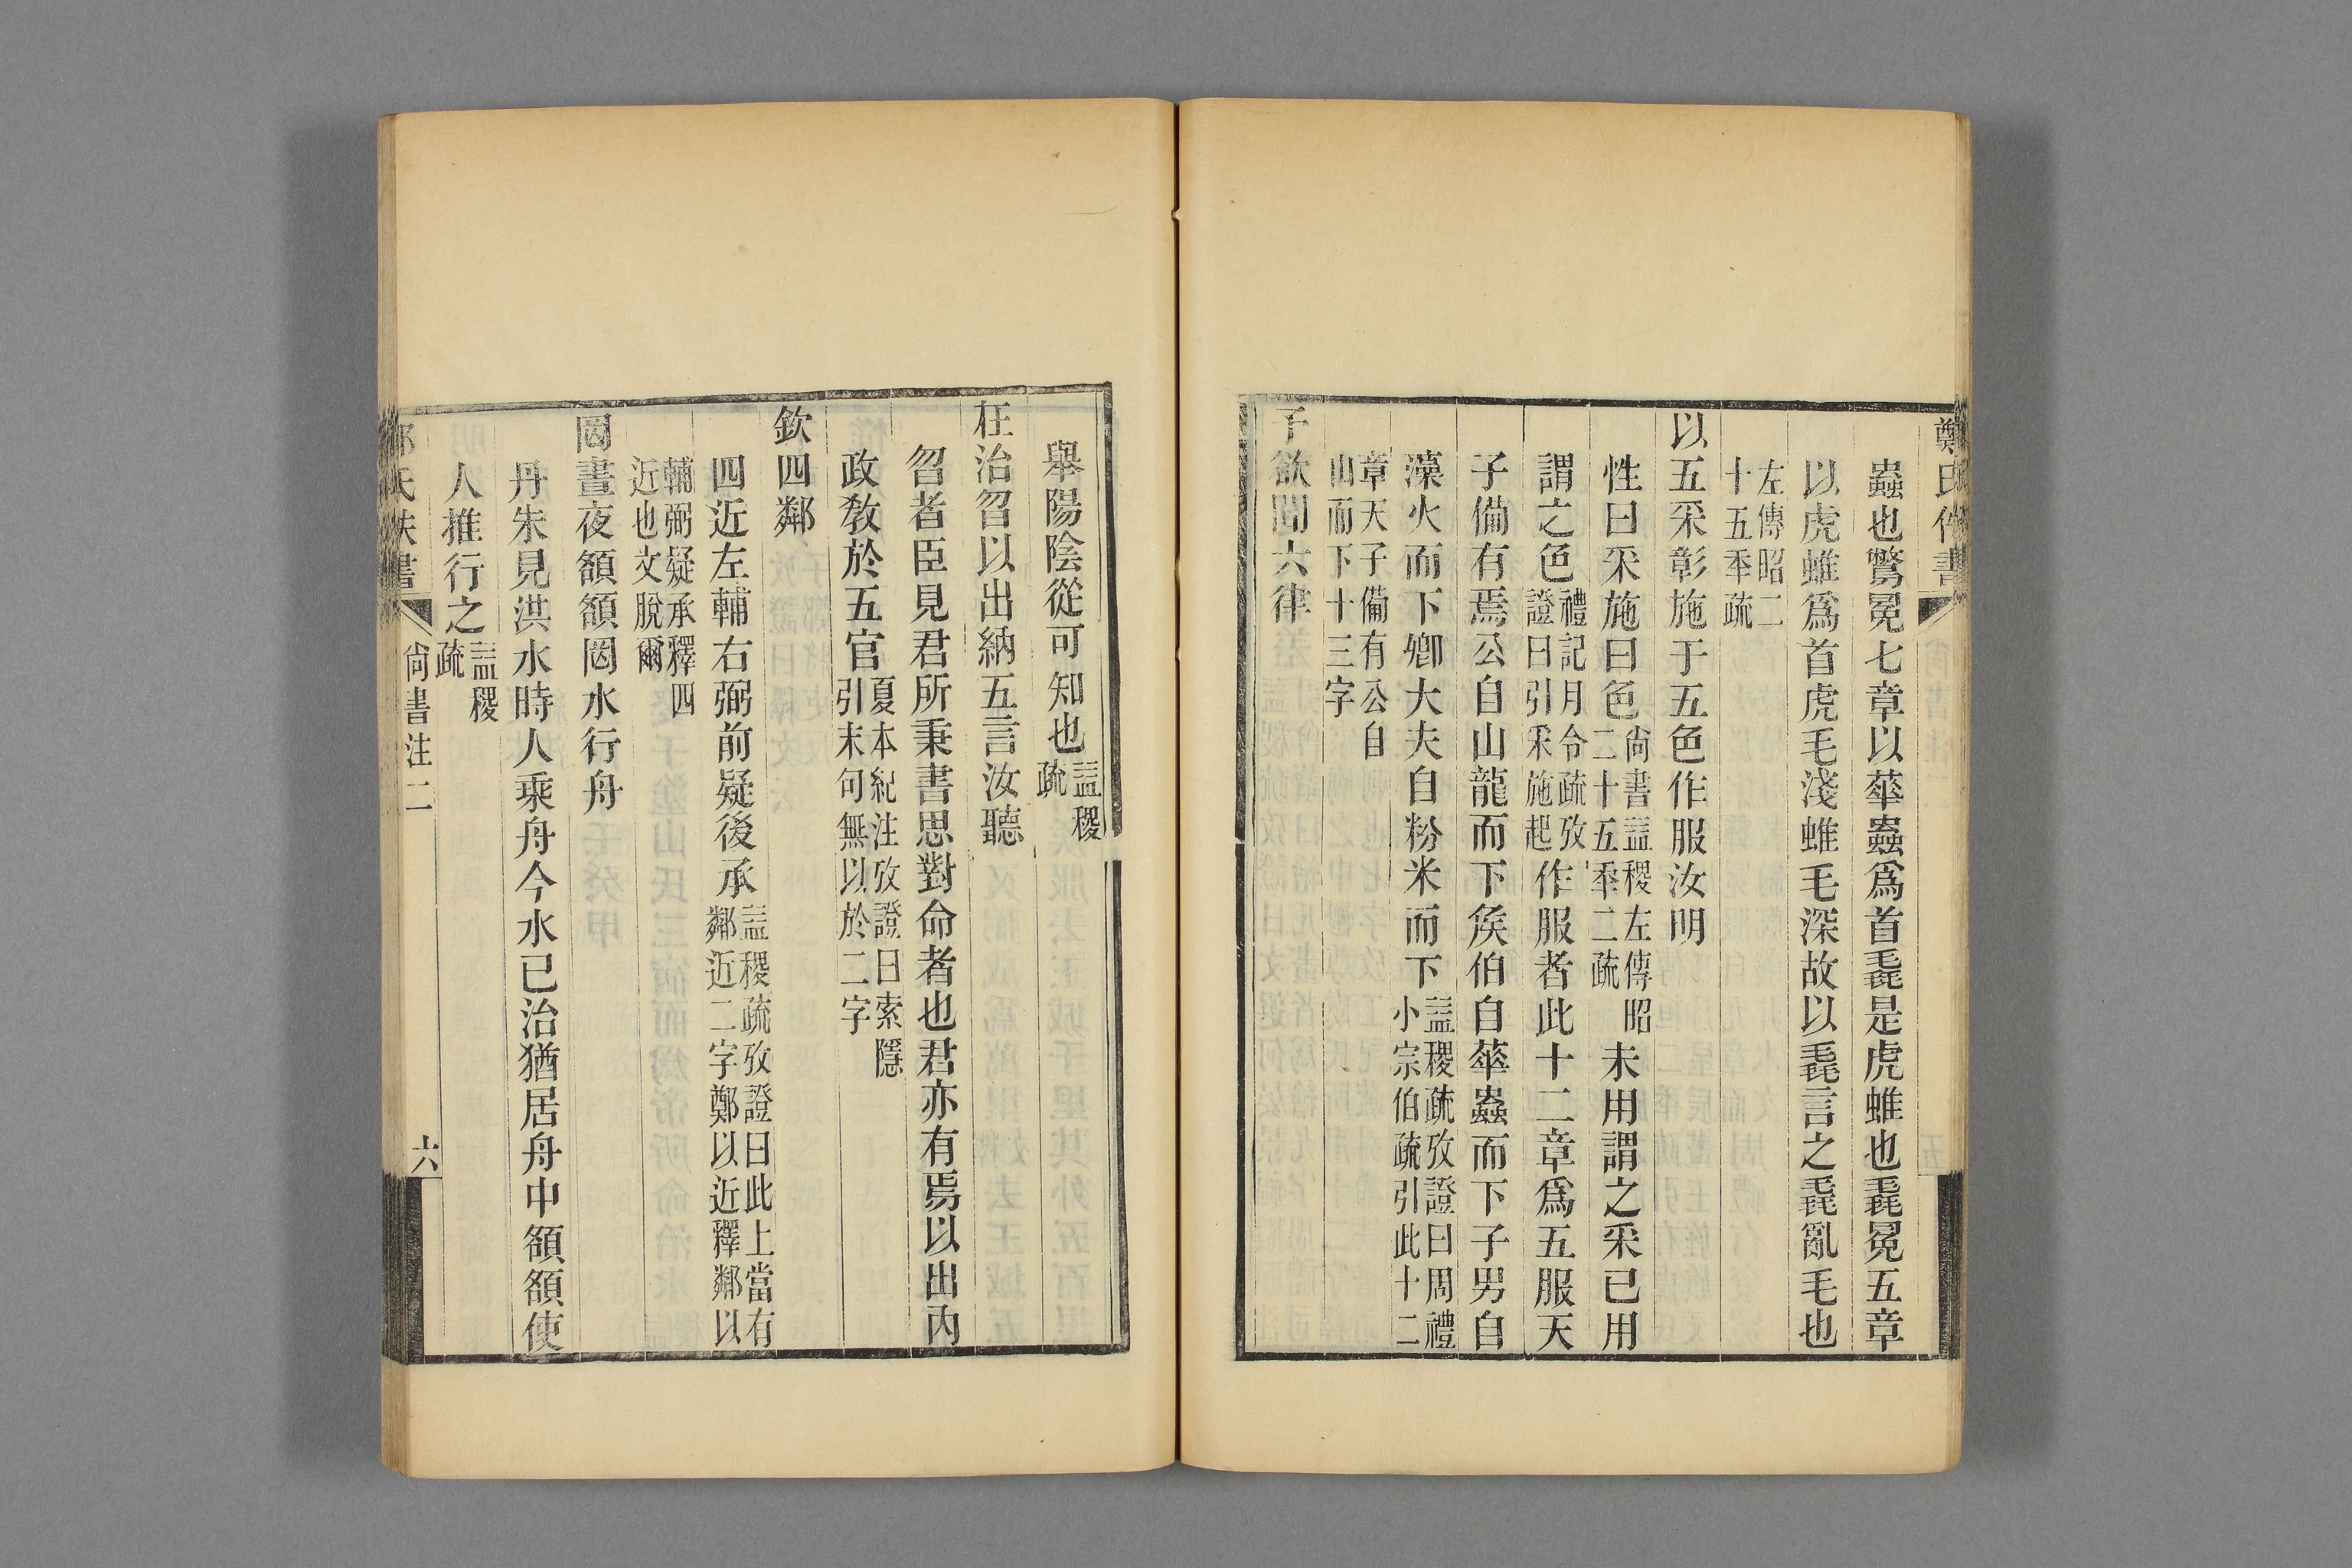 鄭氏佚書
蟲也鷩冕七章以蕐蟲爲首毳是虎蜼也毳冕五章
以虎蜼爲首虎毛淺蜼毛深故以毳言之毳亂毛也
左傳昭二
十五秊疏
以五采彰施于五色作服汝明
性曰采施曰色
尙書益稷左傳昭
二十五秊二疏
未用謂之采已用
謂之色
禮記月令疏攷
證曰引采施起
作服者此十二章爲五服天
子備有焉公自山龍而下矦伯自蕐蟲而下子男自
藻火而下卿大夫自粉米而下
益稷疏攷證曰周禮
小宗伯疏引此十二
章天子備有公自
山而下十三字
予欲聞六律
舉陽陰從可知也
益稷
疏
在治曶以出納五言汝聽
曶者臣見君所秉書思對命者也君亦有焉以出內
政敎於五官
夏本紀注攷證曰索隱
引末句無以於二字
欽四鄰
四近左輔右弼前疑後承
益稷疏攷證曰此上當有
鄰近二字鄭以近釋鄰以
輔弼疑承釋四
近也文脫爾
罔晝夜頟頟罔水行舟
丹朱見洪水時人乘舟今水已治猶居舟中頟頟使
人推行之
益稷
疏
氏佚書
尙書注二
六